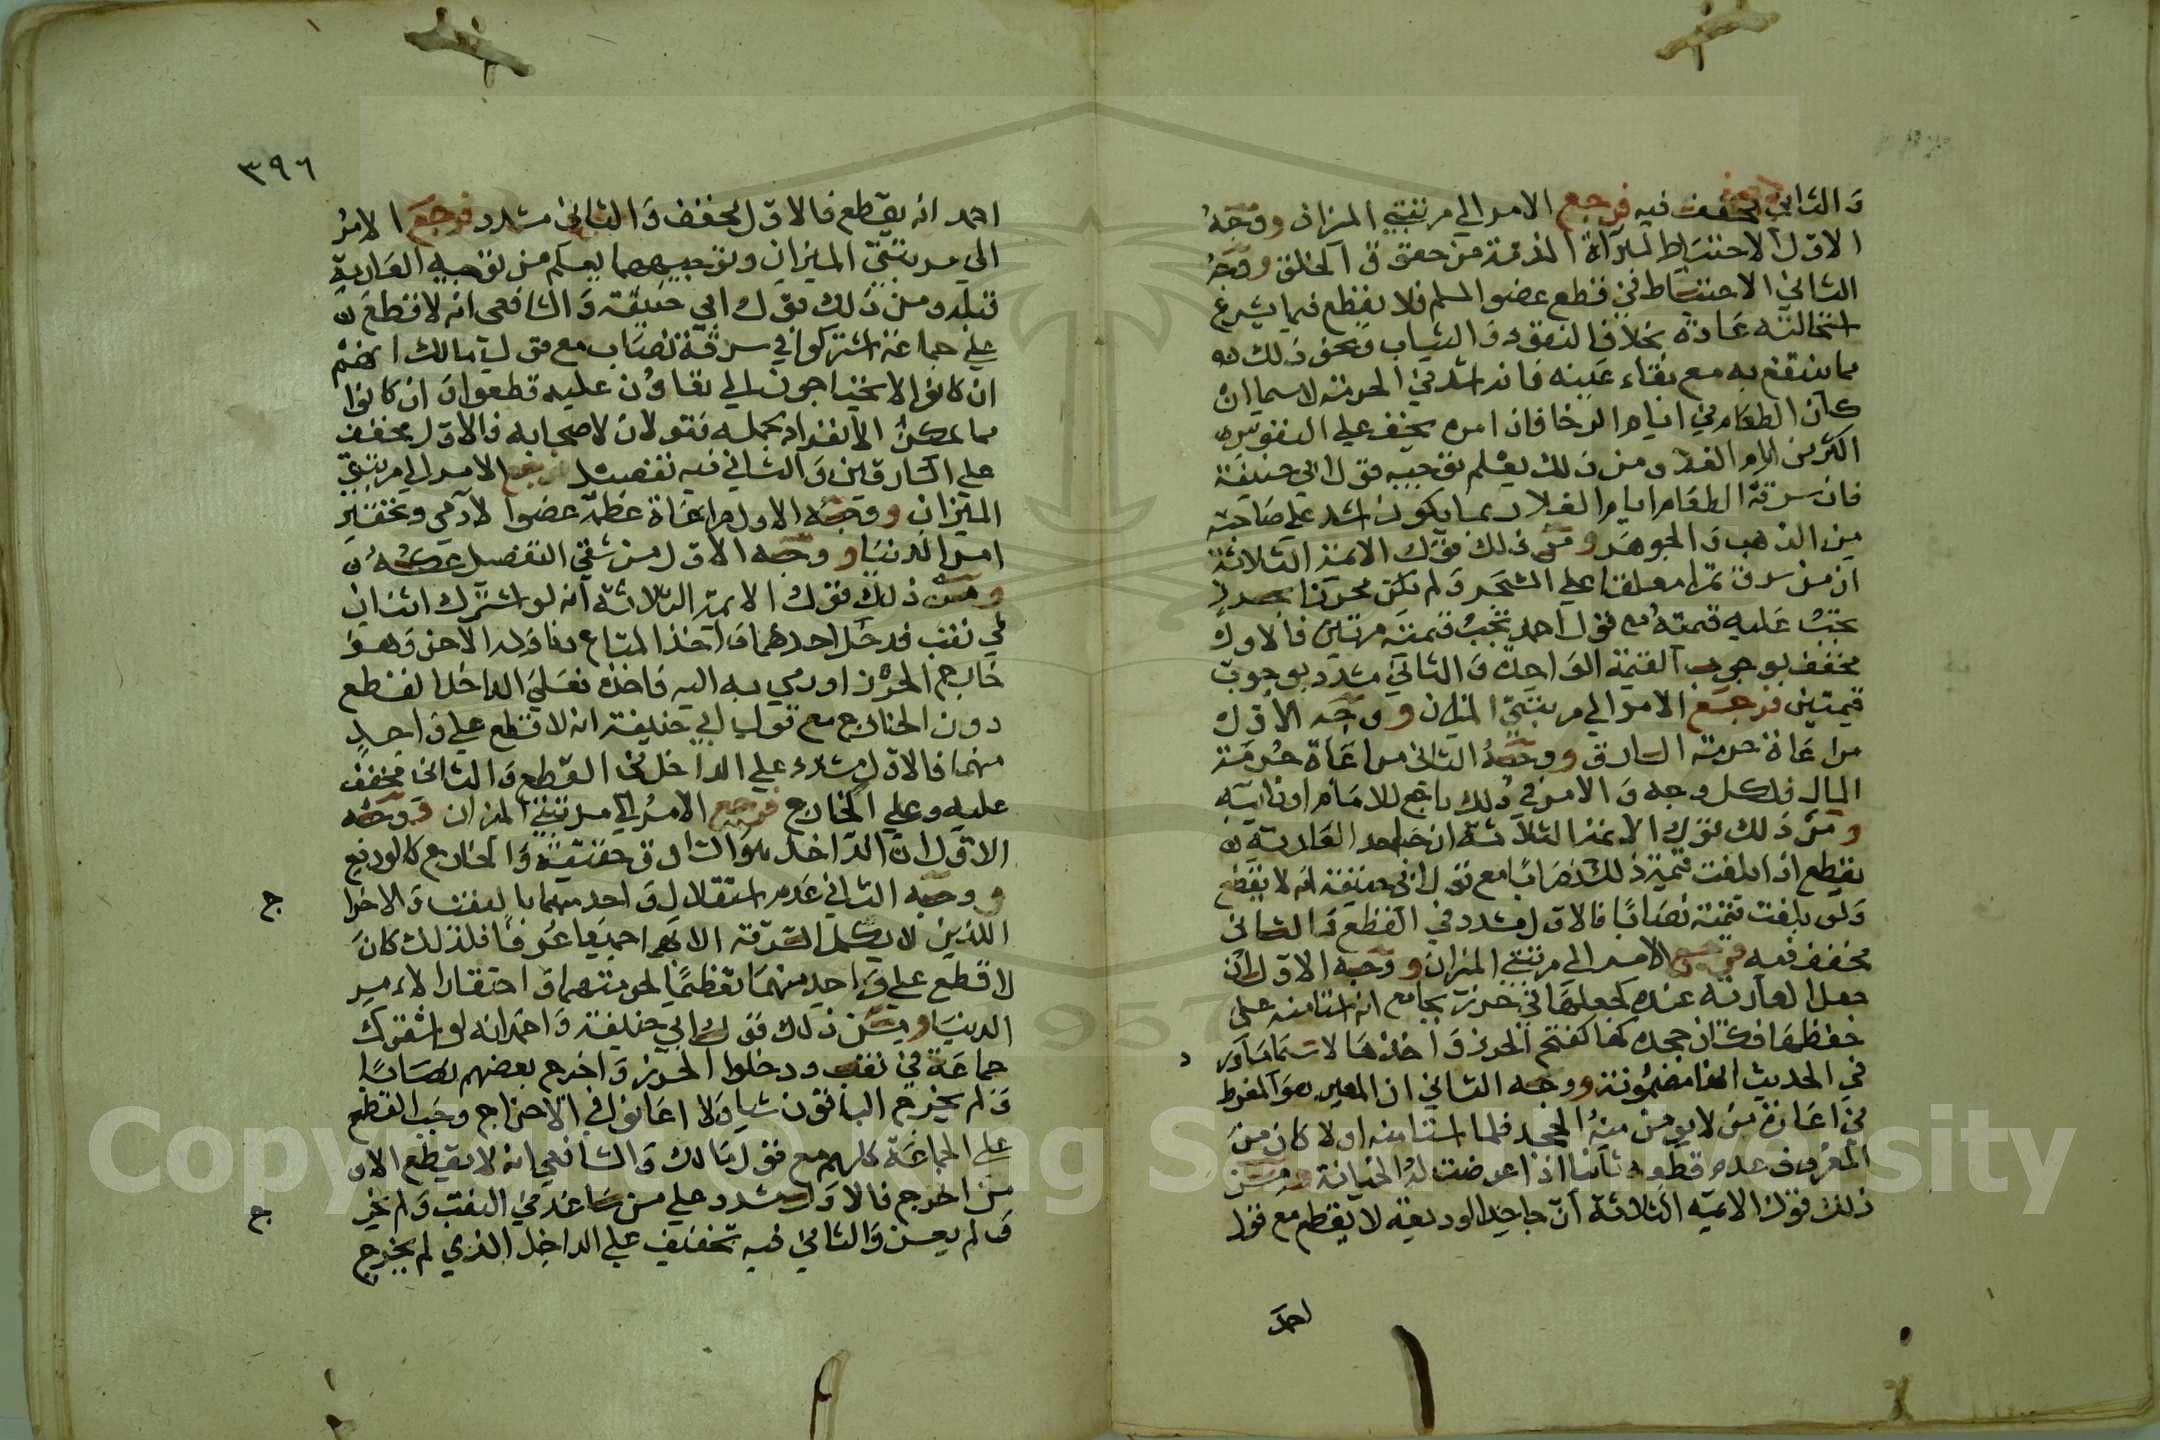 والثاني مخفف فيه فرجع الامر الي مرتبتي الميزان ووجه
الاول الاحتياط لبرآة الذمة من حقوق الخلق ووجه
الثاني الاحتياط في قطع عضو المسلم فلا يقطع فيما يشرع
استحالته عادة بخلاف النقود والثياب ونحو ذلك
مما ينتفع به مع بقاء عينه فانه اشد في الحرمة لاسيما ان
كان الطعام في ايام الرخا فان امره يخف علي النفوس
اكثر من ايام الغلا ومن ذلك يعلم توجيه قول ابي حنيفة
فان سرقة الطعام ايام الغلا ربما يكون اشد علي صاحبه
من الذهب والجوهر ومن ذلك قول الائمة الثلاثة
ان من سرق تمرا معلقا علي الشجر ولم يكن محرزا بحرز
يجب عليه قيمته مع قول احمد يجب قيمته مرتين فالاول
مخفف بوجوب القيمة الواحدة والثاني مشدد بوجوب
قيمتين فرجع الامر الي مرتبتي الميزان ووجه الاول
مراعاة حرمة السارق ووجه الثاني مراعاة حرمة
المال فلكل وجه والامر في ذلك راجع للامام او نايبه
ومن ذلك قول الائمة الثلاثة ان جاحد العارية
يقطع اذا بلغت قيمة ذلك نصابا مع قول ابي حنيفة انه لا يقطع
ولو بلغت قيمته نصابا فالاول مشدد في القطع والثاني
مخفف فيه فرجع الامر الي مرتبتي الميزان ووجه الاول ان
جعل العارية عنده كجعلها في حرز بجامع انه استامنه علي
حفظها فكان جحده لها كفتح الحرز واخذها لاسيما وقد
في الحديث انها مضمونة ووجه الثاني ان المعير هو المفرط
في اعارة من لا يومن منه الجحد فلما استامنه اولا كان من
المعروف عدم قطعه ثانيا اذا عرضت له الخيانة ومن
ذلك قول الائمة الثلاثة ان جاحد الوديعة لا يقطع مع قول
احمد
٣٩٦
احمد انه يقطع فالاول مخفف والثاني مشدد فرجع الامر
الي مرتبتي الميزان وتوجيههما يعلم من توجيه العارية
قبله ومن ذلك قول ابي حنيفة والشافعي انه لا قطع
علي جماعة اشتركوا في سرقة نصاب مع قول مالك انهم
ان كانوا لا يحتاجون الي تعاون عليه قطعوا وان كانوا
مما يمكن الانفراد بحمله فقولان لاصحابه فالاول مخفف
علي السارقين والثاني فيه تفصيل فرجع الامر الي مرتبتي
الميزان ووجه الاول مراعاة عظمة عضو الادمي وتحقير
امر الدنيا ووجه الاول من شقي التفصيل عكسه
ومن ذلك قول الائمة الثلاثة انه لو اشترك اثنان
في نقب فدخل احدهما واخذ المتاع وناوله الاخر وهو
خارج الحرز او رمي به اليه فاخذه فعلي الداخل القطع
دون الخارج مع قول ابي حنيفة انه لا قطع علي واحد
منهما فالاول مشدد علي الداخل في القطع والثاني مخفف
عليه وعلي الخارج فرجع الامر الي مرتبتي الميزان ووجه
الاول ان الداخل هو السارق حقيقة والخارج كالوديع
ووجه الثاني عدم استقلال واحد منهما بالنقب والاخراج
اللذين لا يكمل السرقة الا بهما جميعا عرفا فلذلك كان
لا قطع علي واحد منهما تعظيما لحرمتهما واحتقارا لامر
الدنيا ومن ذلك قول ابي حنيفة واحمد انه لو اشترك
جماعة في نقب ودخلوا الحرز واخرج بعضهم نصابا
ولم يخرج الباقون شيا ولا اعانوا في الاخراج وجب القطع
علي الجماعة كلهم مع قول مالك والشافعي انه لا يقطع الا
من اخرج فالاول مشدد علي من ساعد في النقب ولم يخرج
ولم يعن والثاني فيه تخفيف علي الداخل الذي لم يخرج
Copyright © King Saud University
1957